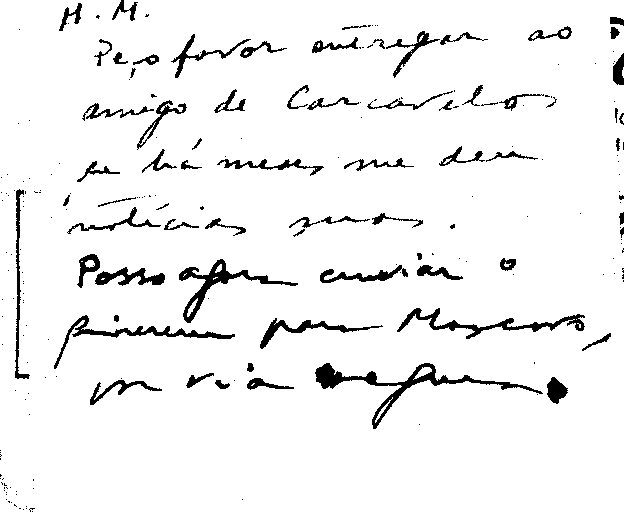 H. M.
Peço favor entregar ao
amigo de Carcavelos
que há meses me deu
notícias suas.
Posso agora enviar o
para Moscovo,
por via segura.